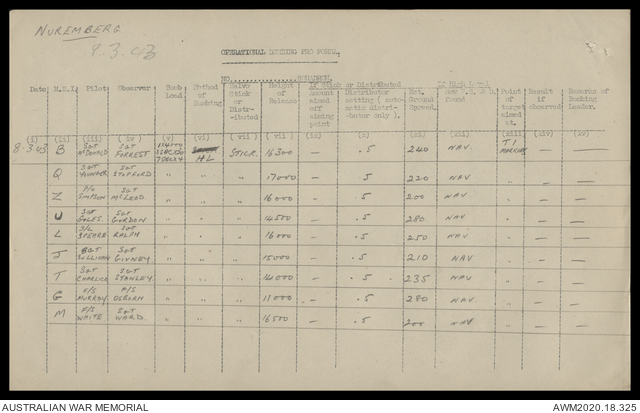 NUREMBERG
9.3.43
OPERATIONAL BOMBING PRO FORMA.
NO. ................ SQUADRON.
Date M.S.I. Pilot Observer Bomb Load. Method of Bombing Salvo Stick or Distr-ibuted Height of Release If Stick or Distributed Amount aimed off aiming point Distributor setting (auto-matic distri-butor only). Est. Ground Speed. If High Level found Point of target aimed at. Result if observed Remarks of Bombing Leader.
(i) (ii) (iii) (iv) (v) (vi) (vii) (viii) (ix) (x) (xi) (xii) (xiii) (xiv) (xv)
8.3.43 B SGT McDONALD SGT FORREST HL STICK 16300 — .5 240 NAV. T.I MARKERS — —
Q SGT YOUNGER SGT STOFFORD " " " 17000 — .5 220 NAV " — —
Z P/O SIMPSON SGT McLEOD " " " 16000 — .5 200 NAV " — —
U SGT COLES SGT GORDON " " " 14500 — .5 280 NAV " — —
L F/L SPEARE SGT RALPH " " " 16000 — .5 250 NAV " — —
J SGT SULLIVAN SGT GINNEY " " " 15000 — .5 210 NAV " — —
T SGT CHARLICK SGT STANLEY " " " 14000 — .5 235 NAV " — —
G F/S MURRAY F/S OSBORN " " " 11000 — .5 280 NAV " — —
M F/S WHITE SGT WARD " " " 16500 — .5 200 NAV " — —
AUSTRALIAN WAR MEMORIAL
AWM2020.18.325